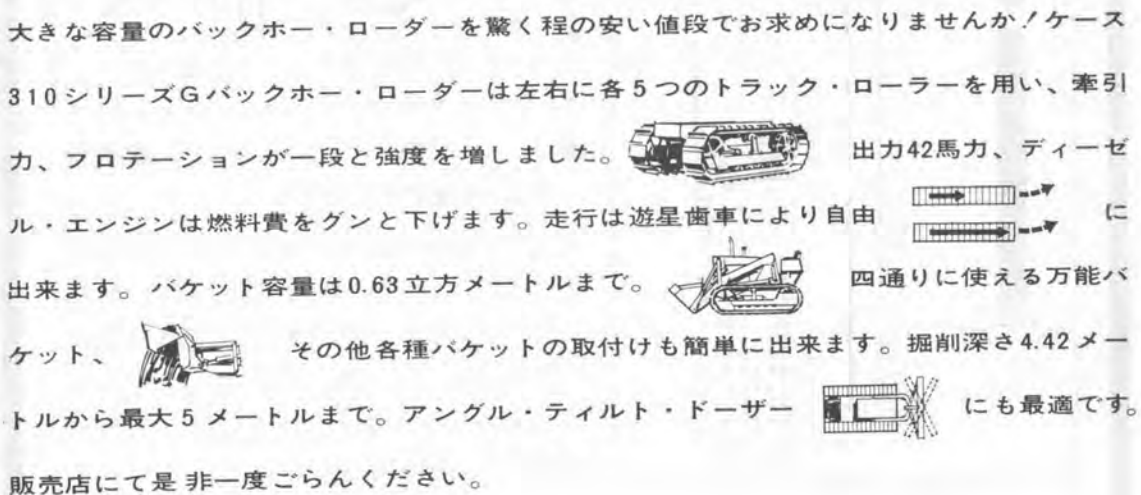 大きな容量のバックホー・ローダーを驚く程の安い値段でお求めになりませんか！ケース
310シリーズGバックホー・ローダーは左右に各5つのトラック・ローラーを用い、牽引
力、フロテーションが一段と強度を増しました。 出力42馬力、ディーゼ
ル・エンジンは燃料費をグンと下げます。走行は遊星歯車により自由 に
出来ます。バケット容量は0.63立方メートルまで。 四通りに使える万能バ
ケット、 その他各種バケットの取付けも簡単に出来ます。掘削深さ4.42メー
トルから最大5メートルまで。アングル・ティルト・ドーザー にも最適です。
販売店にて是非一度ごらんください。